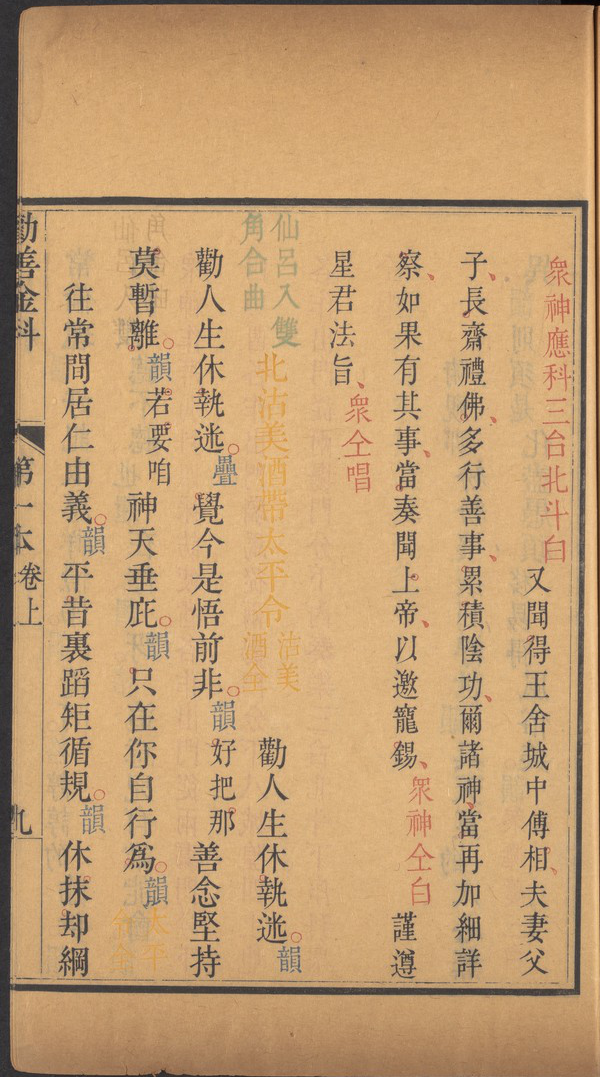 衆神應科三台北斗白又聞得王舍城中傅相、夫妻父
子、長齋禮佛、多行善事、累積陰功、爾諸神當再加細詳
察、如果有其事、當奏聞上帝、以邀寵錫、衆神仝白謹遵
星君法旨、衆仝唱
仙呂入雙角合曲北沽美酒帶太平令沽美酒全勸人生休執迷。韻
勸人生休執迷。疊覺今是悟前非。韻好把那善念堅持
莫暫離。韻若要咱神天垂庇。韻只在你自行爲。韻太平令全
往常問居仁由義。韻平昔裏蹈矩循規。韻休抹却綱
勸善金科 第一本卷上 九